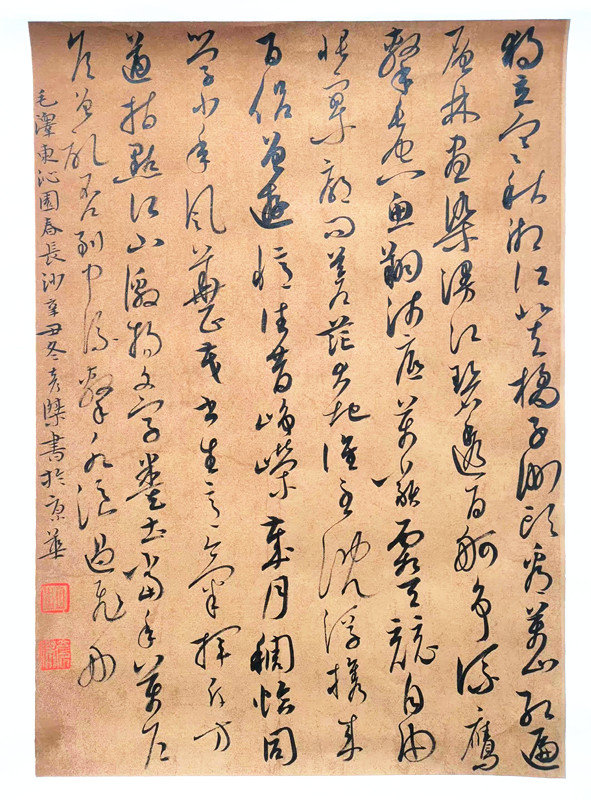 獨立寒秋湘江北去橘子洲頭看萬山紅遍
層林盡染漫江碧透百舸爭流鷹
擊長空魚翔淺底萬類霜天競自由
悵寥廓問蒼茫大地誰主沈浮攜來
百侶曾遊憶往昔崢嶸歲月稠恰同
學少年風華正茂書生意氣揮斥方
遒指點江山激揚文字糞土當年萬戶
侯曾記否到中流擊水浪遏飛舟
毛澤東沁園春長沙辛丑冬彥書於京華